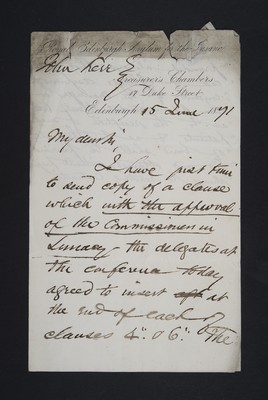 Royal Edinburgh Asylum for the Insane
John Keir Esq
Treasurer's Chambers
17 Duke Street
Edinburgh 15 June 1891
My dear Sir,
I have just time
to send copy of a clause
which with the approval
of the Commissioners in
Lunacy the delegates at
the conference today
agreed to insert at
the end of each of
clauses 4th & 6th. The